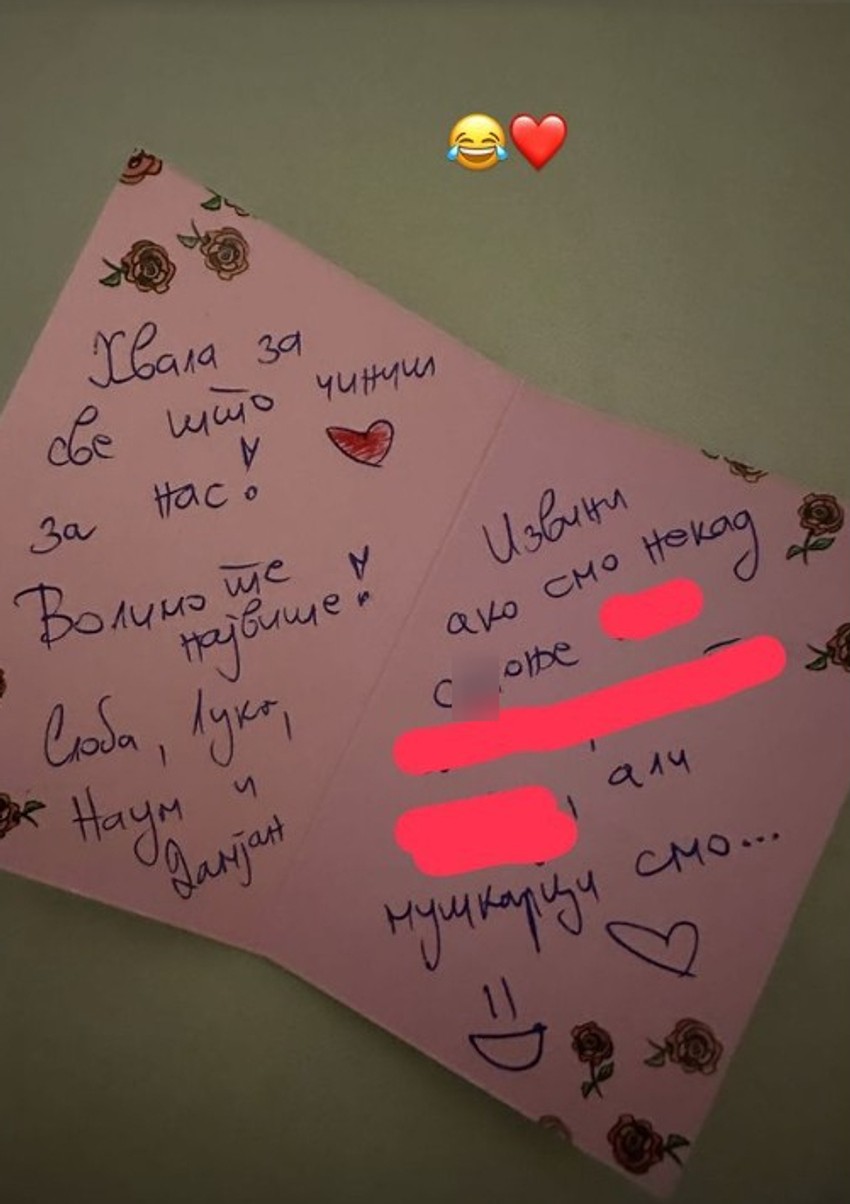 Хвала за
све што чиниш
за нас!
Волимо те
највише!
Слоба, Лука,
Наум и
Дамјан
Извини
ако смо некад
али
мушкарци смо...